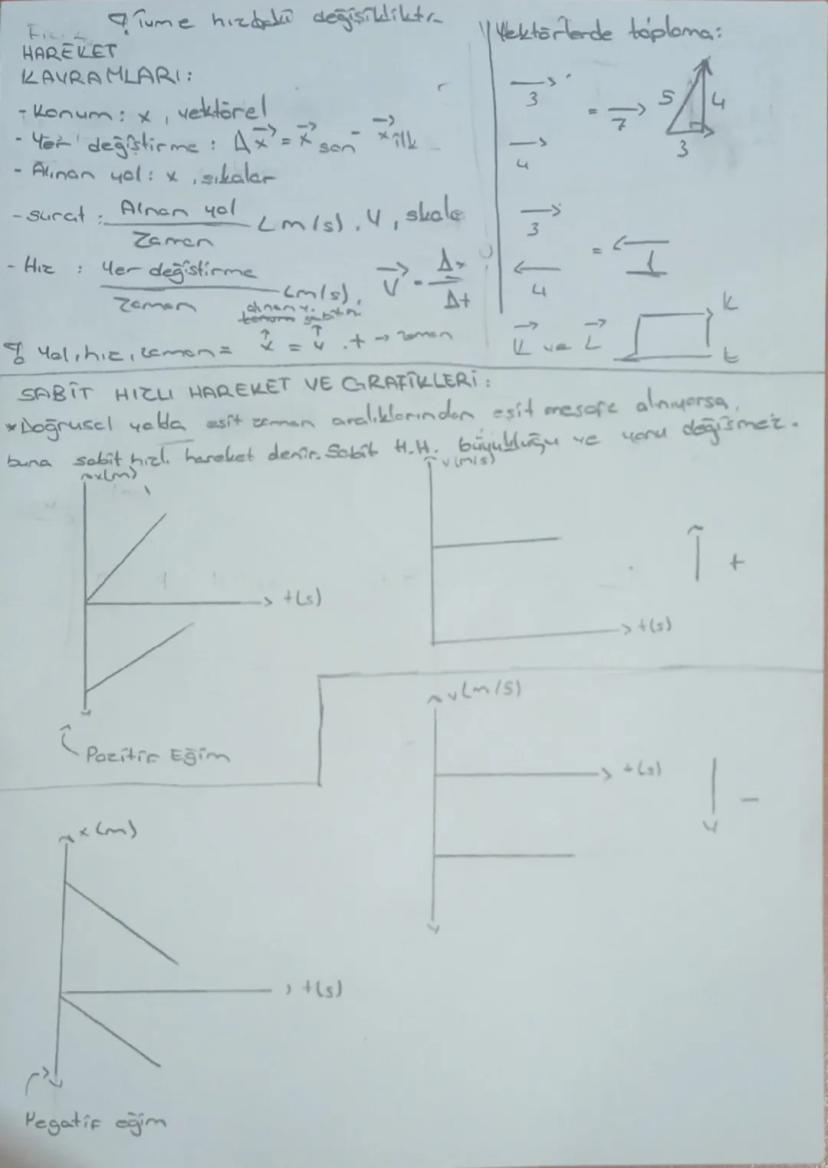 İvme hızdaki değişikliktir
HAREKET
KAVRAMLARI:
- Konum: x, vektörel
- Yer değiştirme: Δx = x son - x ilk
- Alınan yol: x, sıkalar
- surat: Alınan yol / Zaman (m/s). V, skale
- Hız: Yer değiştirme / Zaman (m/s), V = Δx / Δt
yol, hız, zaman = x = v . t → zaman
Vektörlerde toplama:
3
4
= 7
5 4
3
3
4
= 1
K ve L
K
L
SABİT HIZLI HAREKET VE GRAFİKLERİ:
*Doğrusal yolda eşit zaman aralıklarından eşit mesafe alınıyorsa,
buna sabit hızlı hareket denir. Sabit H.H. büyüklüğü ve yönü değişmez.
x(m)
t(s)
Pozitif Eğim
v(m/s)
t(s)
+
v(m/s)
t(s)
-
x(m)
t(s)
Negatif eğim